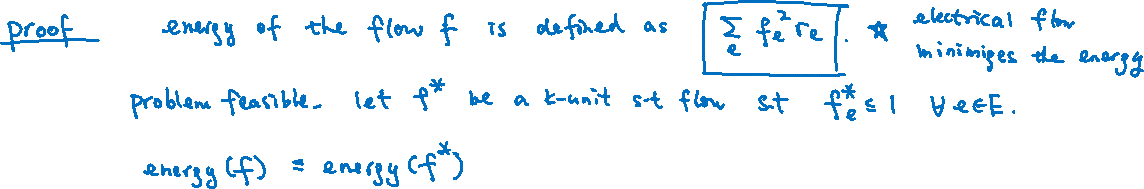 proof energy of the flow f is defined as Σ_e f_e² r_e . * electrical flow
minimizes the energy
problem feasible. let f* be a k-unit s-t flow s.t f_e* ≤ 1 ∀ e∈E.
energy(f) ≤ energy(f*)